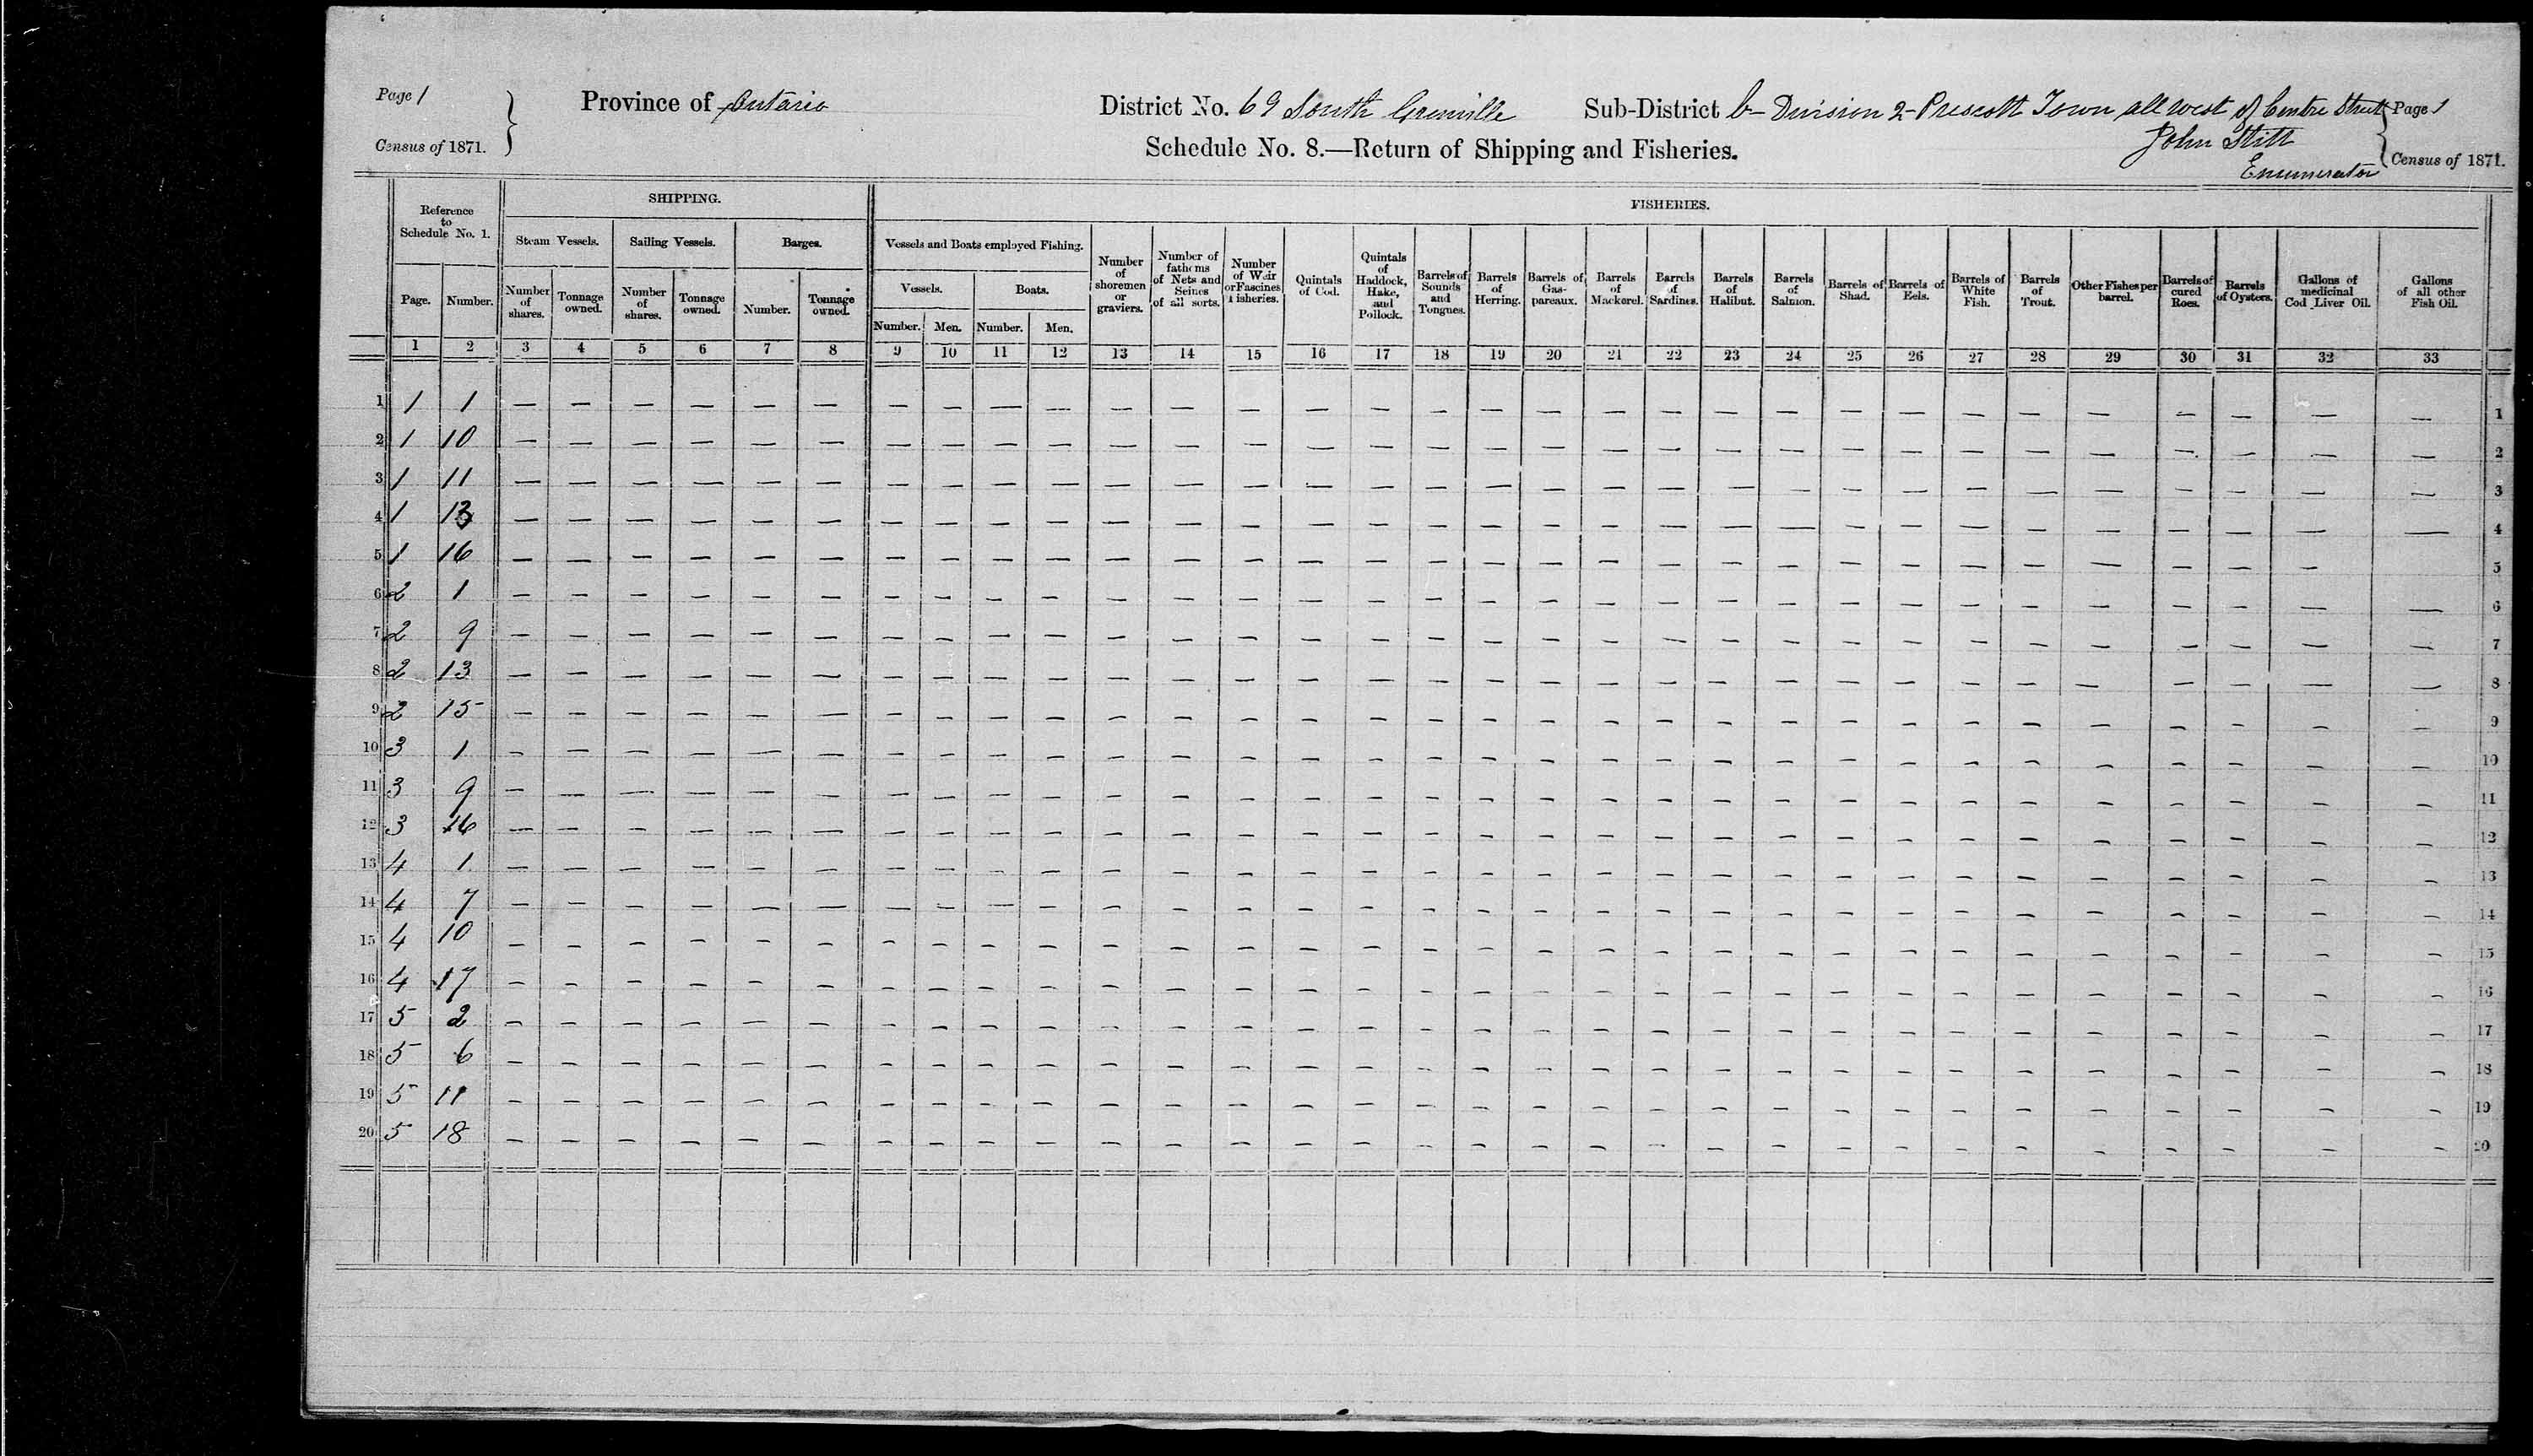 Page 1
Province of Ontario
District No. 69 South Grenville
Sub-District b - Division 2 - Prescott Town all west of Centre Street
Page 1
Census of 1871.
Schedule No. 8.—Return of Shipping and Fisheries.
John Stitt
Enumerator
Census of 1871.
Reference to Schedule No. 1.
SHIPPING.
FISHERIES.
Steam Vessels.
Sailing Vessels.
Barges.
Vessels and Boats employed Fishing.
Vessels.
Boats.
Page.
Number.
Number of shares.
Tonnage owned.
Number of shares.
Tonnage owned.
Number.
Tonnage owned.
Number.
Men.
Number.
Men.
Number of shoremen or graviers.
Number of fathoms of Nets and Seines of all sorts.
Number of Weir or Fascines Fisheries.
Quintals of Cod.
Quintals of Haddock, Hake, and Pollock.
Barrels of Sounds and Tongues.
Barrels of Herring.
Barrels of Gaspareaux.
Barrels of Mackerel.
Barrels of Sardines.
Barrels of Halibut.
Barrels of Salmon.
Barrels of Shad.
Barrels of Eels.
Barrels of White Fish.
Barrels of Trout.
Other Fishes per barrel.
Barrels of cured Roes.
Barrels of Oysters.
Gallons of medicinal Cod Liver Oil.
Gallons of all other Fish Oil.
1 2 3 4 5 6 7 8 9 10 11 12 13 14 15 16 17 18 19 20 21 22 23 24 25 26 27 28 29 30 31 32 33
1 1 1 — — — — — — — — — — — — — — — — — — — — — — — — — — — — — — — 1
2 1 10 — — — — — — — — — — — — — — — — — — — — — — — — — — — — — — — 2
3 1 11 — — — — — — — — — — — — — — — — — — — — — — — — — — — — — — — 3
4 1 13 — — — — — — — — — — — — — — — — — — — — — — — — — — — — — — — 4
5 1 16 — — — — — — — — — — — — — — — — — — — — — — — — — — — — — — 5
6 2 1 — — — — — — — — — — — — — — — — — — — — — — — — — — — — — — — 6
7 2 9 — — — — — — — — — — — — — — — — — — — — — — — — — — — — — — — 7
8 2 13 — — — — — — — — — — — — — — — — — — — — — — — — — — — — — — — 8
9 2 15 — — — — — — — — — — — — — — — — — — — — — — — — — — — — — — — 9
10 3 1 — — — — — — — — — — — — — — — — — — — — — — — — — — — — — — — 10
11 3 9 — — — — — — — — — — — — — — — — — — — — — — — — — — — — — — — 11
12 3 16 — — — — — — — — — — — — — — — — — — — — — — — — — — — — — — — 12
13 4 1 — — — — — — — — — — — — — — — — — — — — — — — — — — — — — — — 13
14 4 7 — — — — — — — — — — — — — — — — — — — — — — — — — — — — — — — 14
15 4 10 — — — — — — — — — — — — — — — — — — — — — — — — — — — — — — — 15
16 4 17 — — — — — — — — — — — — — — — — — — — — — — — — — — — — — — — 16
17 5 2 — — — — — — — — — — — — — — — — — — — — — — — — — — — — — — — 17
18 5 6 — — — — — — — — — — — — — — — — — — — — — — — — — — — — — — — 18
19 5 11 — — — — — — — — — — — — — — — — — — — — — — — — — — — — — — — 19
20 5 18 — — — — — — — — — — — — — — — — — — — — — — — — — — — — — — — 20